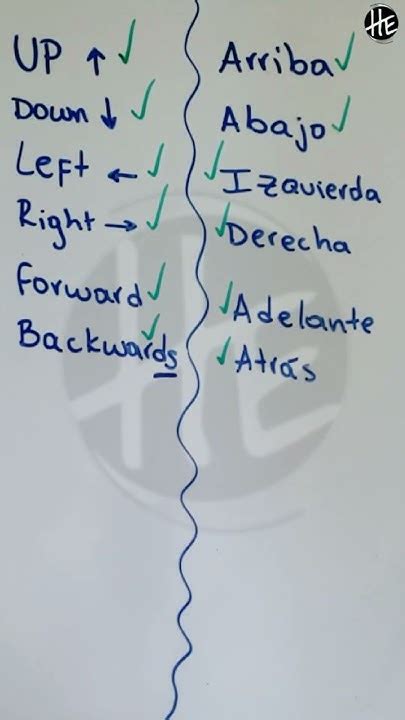 HE
UP ↑ ✓ Arriba ✓
Down ↓ ✓ Abajo ✓
Left ← ✓ ✓ Izquierda
Right → ✓ ✓ Derecha
Forward ✓ ✓ Adelante
Backwards ✓ ✓ Atrás
HE